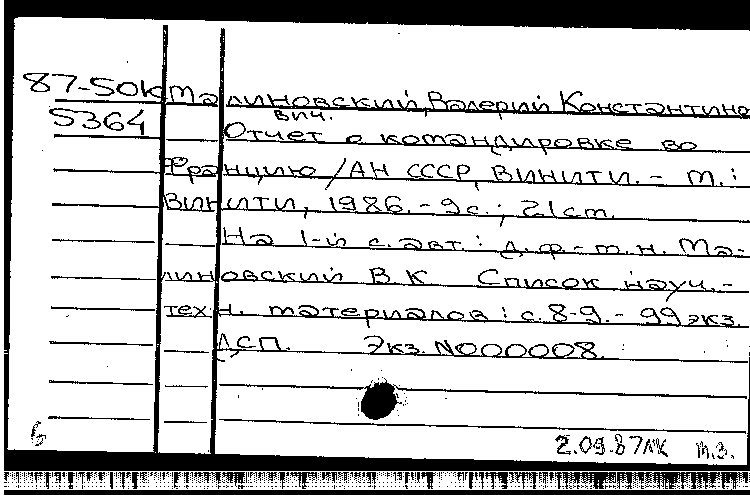 87-50К Малиновский, Валерий Константино
вич.
5364 Отчет о командировке во
Францию / АН СССР, ВИНИТИ. - М. :
ВИНИТИ, 1986. - 9 с. ; 21 см.
На 1-й с. авт. : д. ф.-т. н. Ма-
линовский В К Список науч.-
техн. материалов : с. 8-9. - 99 экз.
ДСП. Экз. N000008.
б 2.09.87 ЛК т.з.